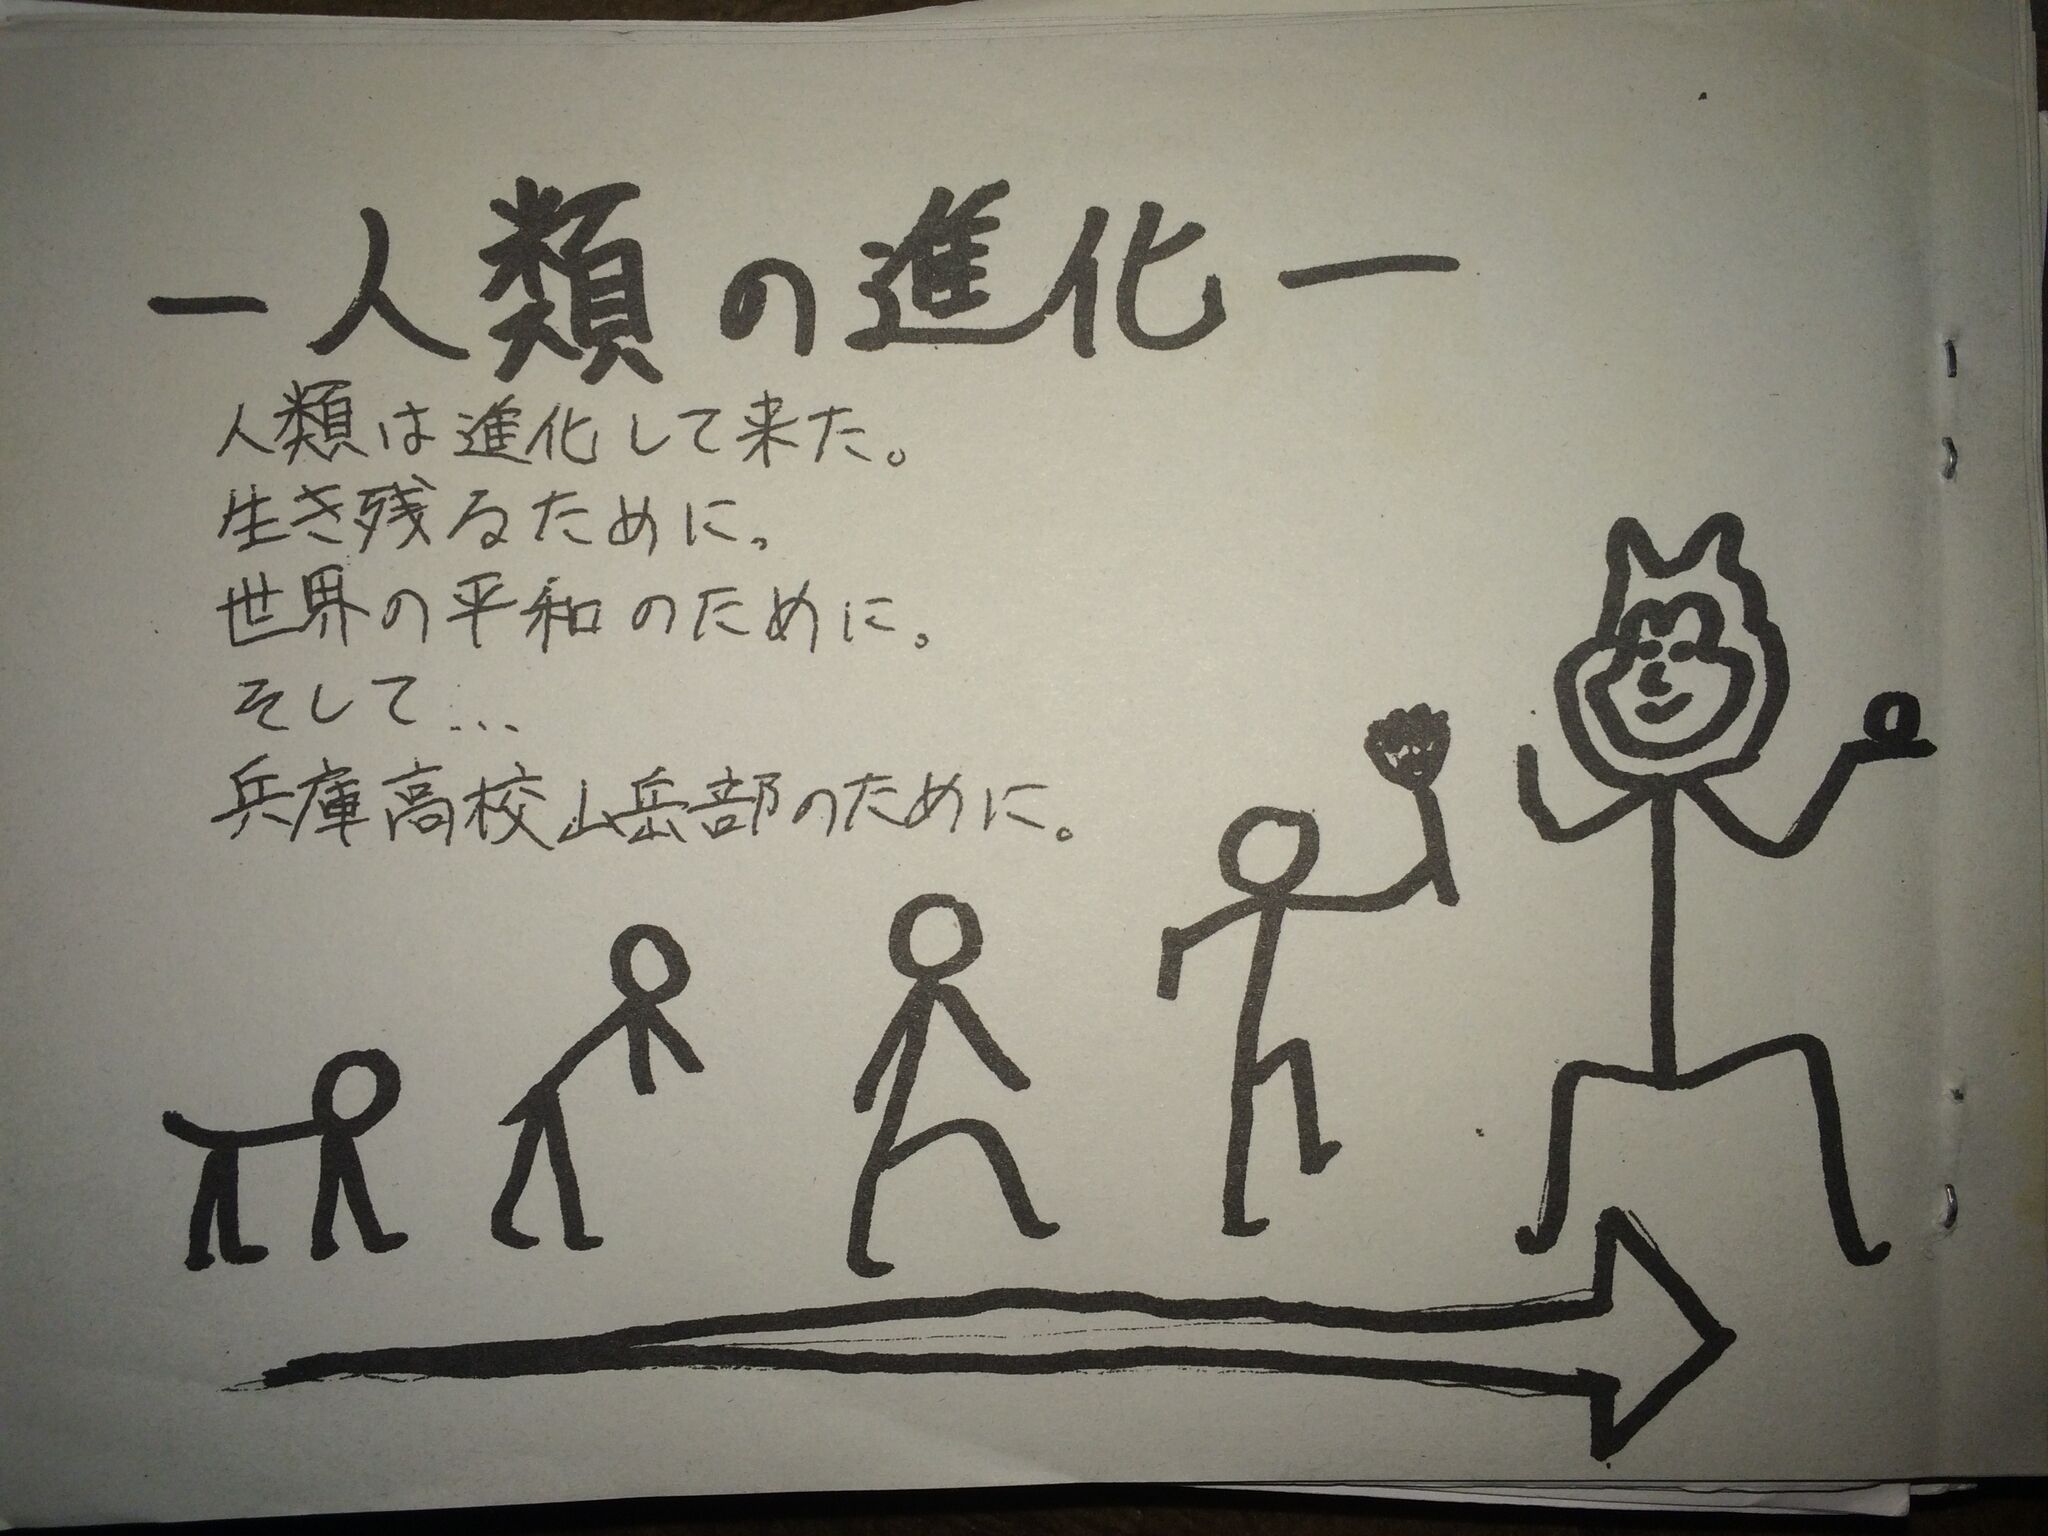 ー人類の進化ー
人類は進化して来た。
生き残るために。
世界の平和のために。
そして...
兵庫高校山岳部のために。